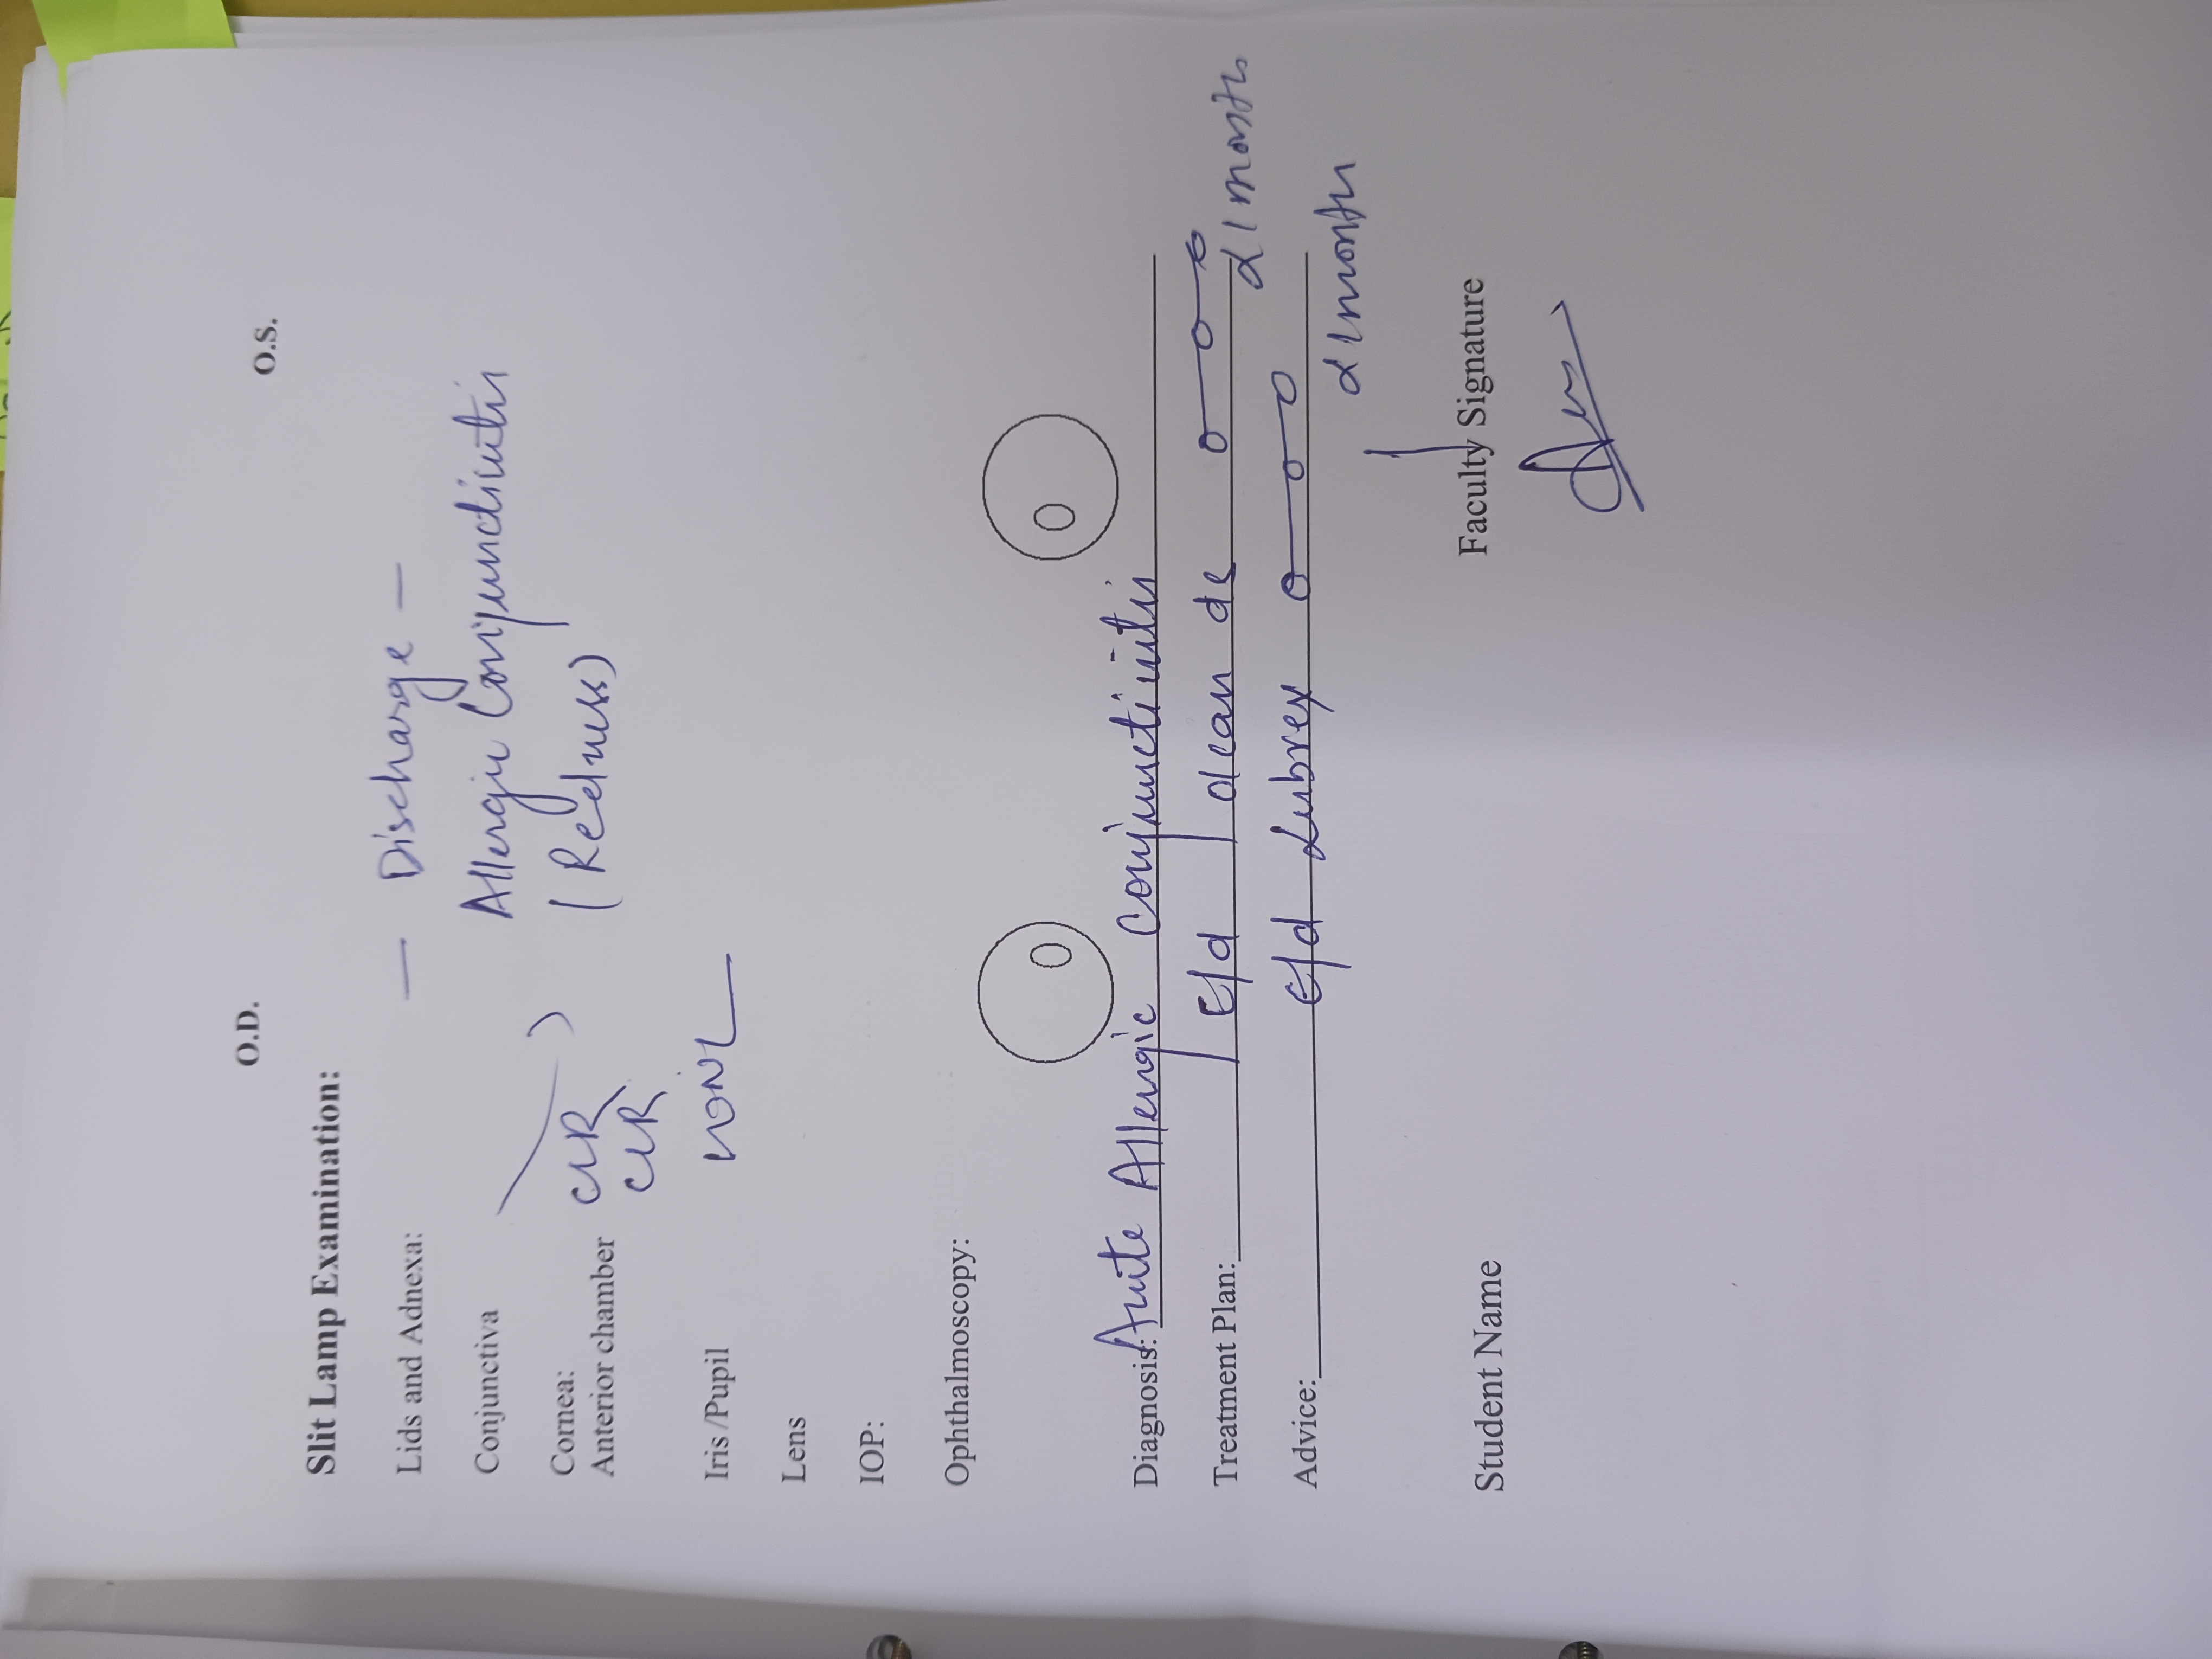 O.D. O.S.
Slit Lamp Examination:
Lids and Adnexa: — Discharge —
Conjunctiva Allergic Conjunctivitis
Cornea: CLR (Redness)
Anterior chamber CLR
Iris /Pupil WNL
Lens
IOP:
Ophthalmoscopy:
Diagnosis: Acute Allergic Conjunctivitis
Treatment Plan: E/d
1 month
Advice: E/d Lubrex
1 month
Student Name Faculty Signature